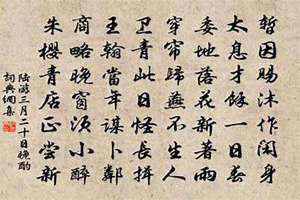 暫因賜沐作閑身
太息才餘一日春
委地落花新著雨
穿帘歸燕不生人
卫青此日怪長揖
王翰當年謀卜鄰
商略晚窗須小醉
朱櫻青店正嘗新
陆游三月二十日晚酌
詞典網集